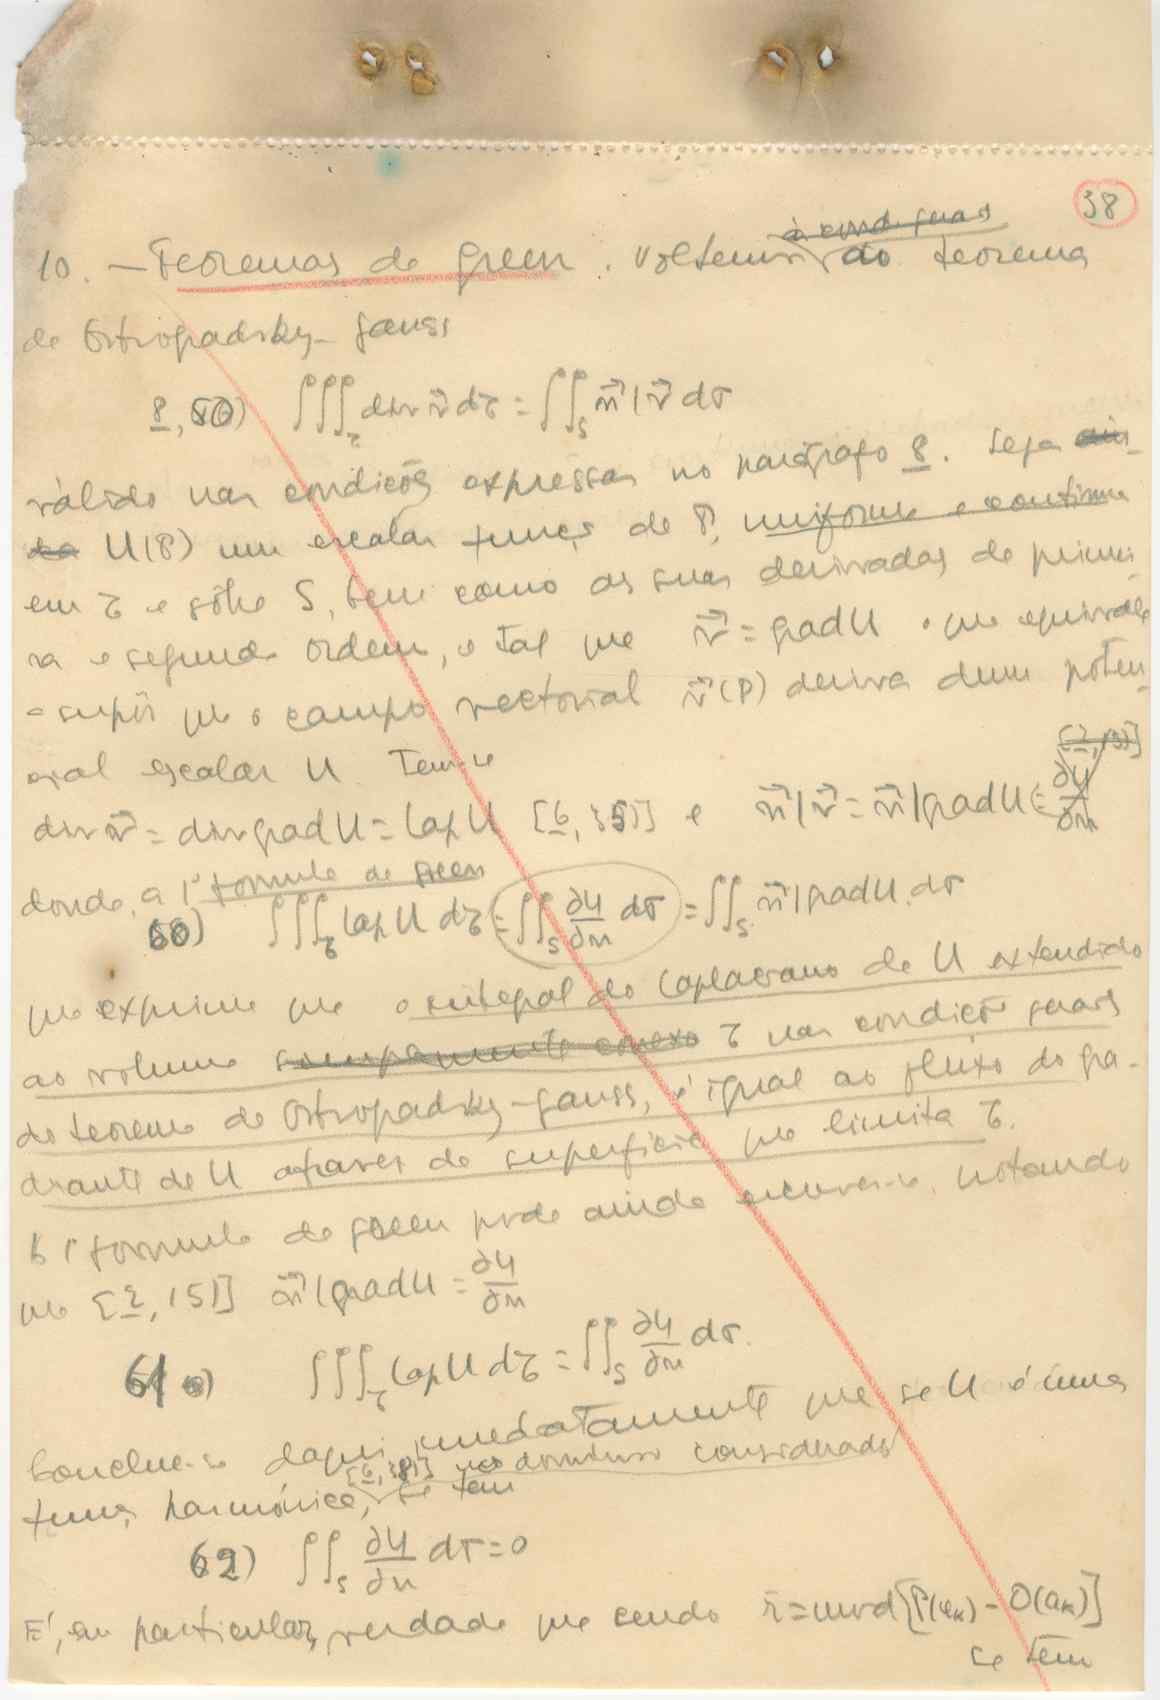 38
10. — Teoremas de Green. Voltemos ao teorema
de Ostrogradsky-Gauss
8, 50) ∫∫∫_τ div v⃗ dτ = ∫∫_S n⃗ | v⃗ dσ
válido nas condições expressas no parágrafo 8. Seja
U(P) um escalar função de P, uniforme e contínua
em τ e sôbre S, bem como as suas derivadas de primei-
ra e segunda ordem, e tal que v⃗ = grad U o que equivale
a supôr que o campo vectorial v⃗(P) deriva dum poten-
cial escalar U. Tem-se [2, 15)]
div v⃗ = div grad U = lap U [6, 35)] e n⃗ | v⃗ = n⃗ | grad U = ∂U/∂n
donde, a 1ª formula de Green
60) ∫∫∫_τ lap U dτ = ∫∫_S ∂U/∂n dσ = ∫∫_S n⃗ | grad U dσ
que exprime que o integral do laplaciano de U extendido
ao volume simplesmente conexo τ nas condições gerais
do teorema de Ostrogradsky-Gauss, é igual ao fluxo do gra-
diante de U através da superfície que limita τ.
A 1ª formula de Green pode ainda escrever-se, notando
que [2, 15)] n⃗ | grad U = ∂U/∂n
61) ∫∫∫_τ lap U dτ = ∫∫_S ∂U/∂n dσ.
Conclue-se daqui imediatamente que se U é uma
função harmónica, [6, 38)] no domínio considerado se tem
62) ∫∫_S ∂U/∂n dσ = 0
É, em particular, verdade que sendo r = mod [P(x_k) - O(a_k)]
se tem